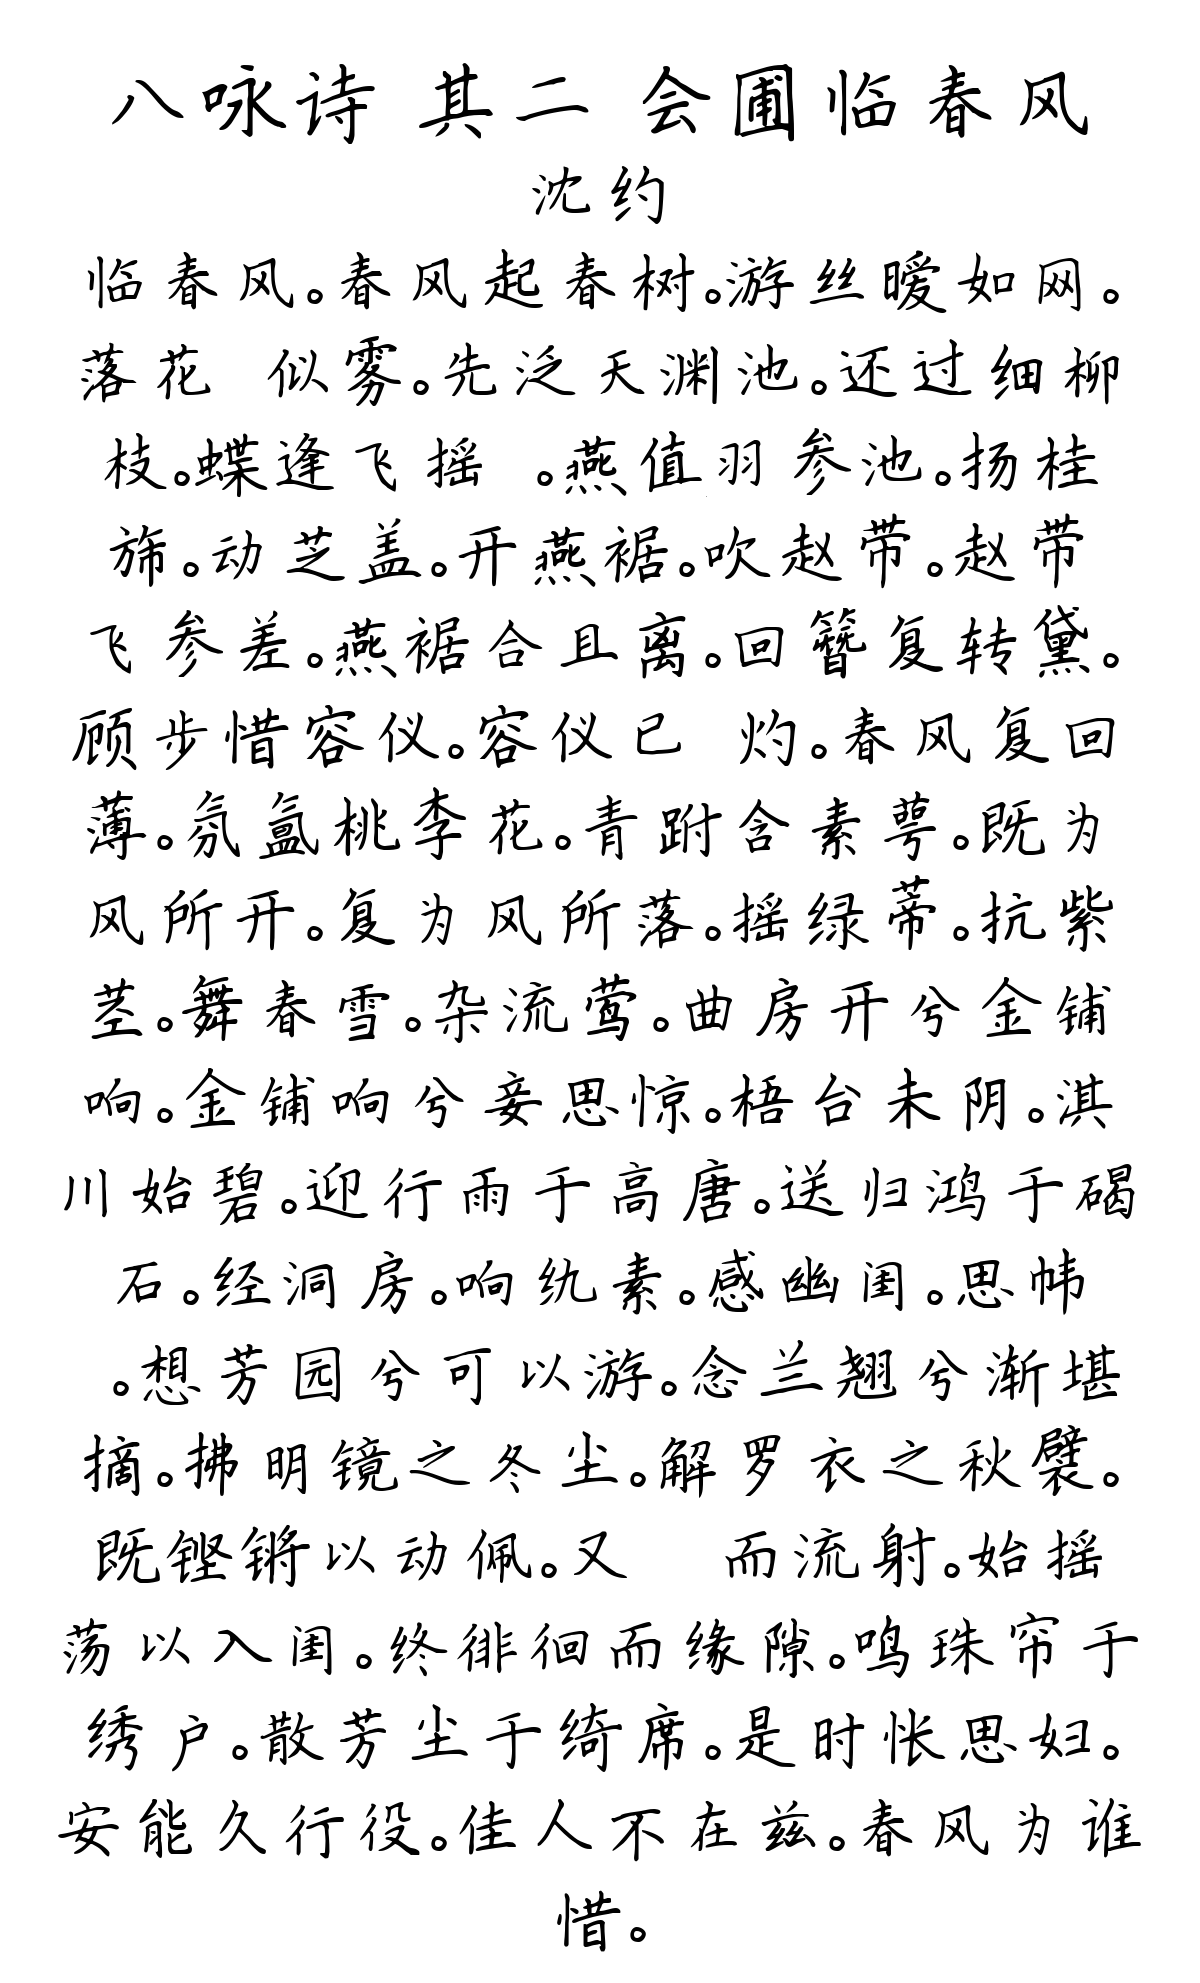 八咏诗 其二 会圃临春风
沈约
临春风。春风起春树。游丝暧如网。
落花 似雾。先泛天渊池。还过细柳
枝。蝶逢飞摇 。燕值羽参池。扬桂
旆。动芝盖。开燕裾。吹赵带。赵带
飞参差。燕裾合且离。回簪复转黛。
顾步惜容仪。容仪已 灼。春风复回
薄。氛氲桃李花。青跗含素萼。既为
风所开。复为风所落。摇绿蒂。抗紫
茎。舞春雪。杂流莺。曲房开兮金铺
响。金铺响兮妾思惊。梧台未阴。淇
川始碧。迎行雨于高唐。送归鸿于碣
石。经洞房。响纨素。感幽闺。思帏
。想芳园兮可以游。念兰翘兮渐堪
摘。拂明镜之冬尘。解罗衣之秋襞。
既铿锵以动佩。又 而流射。始摇
荡以入闺。终徘徊而缘隙。鸣珠帘于
绣户。散芳尘于绮席。是时怅思妇。
安能久行役。佳人不在兹。春风为谁
惜。